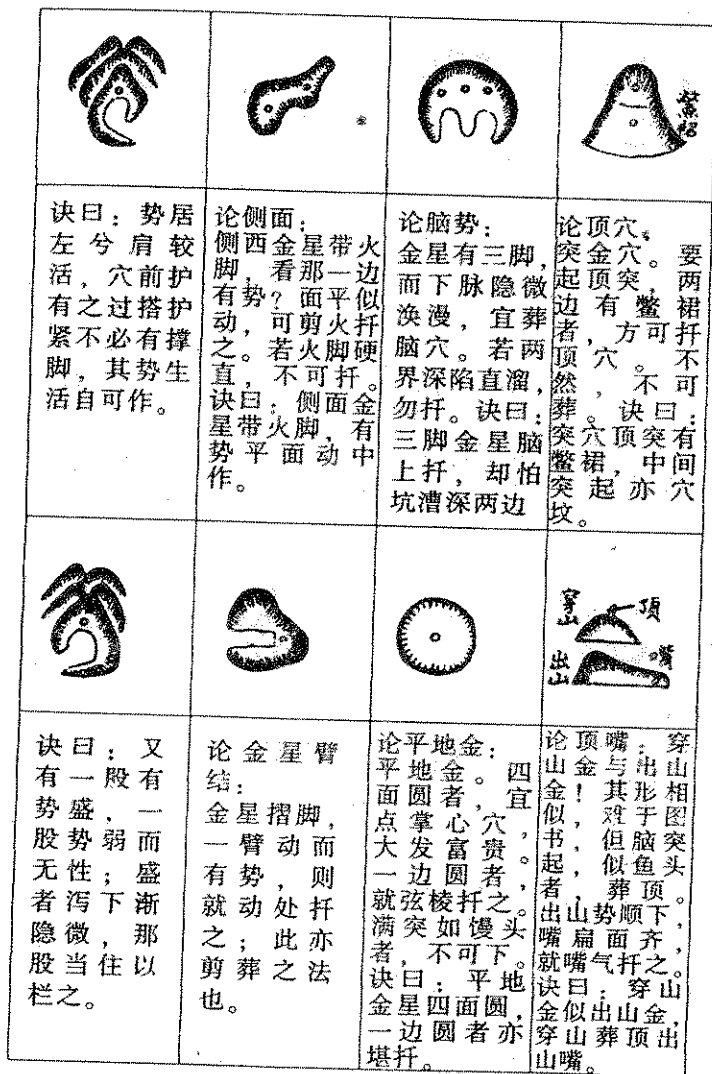 鳖裙
诀曰：势居
左兮肩较
活，穴前护
有之过搭护
紧不必有撑
脚，其势生
活自可作。
论侧面：
侧西金星带火
脚，看那一边
有势？面平似
动，可剪火扦
之。若火脚硬
直，不可扦。
诀曰：侧面金
星带火脚，有
势平面动中
作。
论脑势：
金星有三脚，
而下脉隐微
涣漫，宜葬
脑穴。若两
界深陷直溜，
勿扦。诀曰：
三脚金星脑
上扦，却怕
坑漕深两边
论顶穴、
突金穴。要
起顶突，两
边有鳖裙
者，方可扦
顶穴。不
然，不可
葬。诀曰：
突穴顶突有
鳖裙，中间
突起亦穴
坟。
穿山
顶
出山
嘴
诀曰：又
有一股有
势盛，一
股势弱而
无性；盛
者泻下渐
隐微，那
股当住以
栏之。
论金星臂
结：
金星摺脚，
一臂动而
有势，则
就动处扦
之；此亦
剪葬之法
也。
论平地金：
平地金。四
面圆者，宜
点掌心穴，
大发富贵。
一边圆者，
就弦棱扦之。
满突如馒头
者，不可下。
诀曰：平地
金星四面圆，
一边圆者亦
堪扦。
论顶嘴：穿
山金与出山
金！其形相
似，难于图
书，但脑突
起者，似鱼头，
葬顶。
出山势顺下，
嘴扁面齐，
就嘴气扦之。
诀曰：穿山
金似出山金，
穿山葬顶出
山嘴。